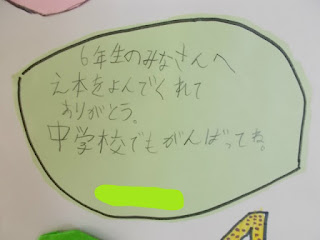 6年生のみなさんへ
え本をよんでくれて
ありがとう。
中学校でもがんばってね。